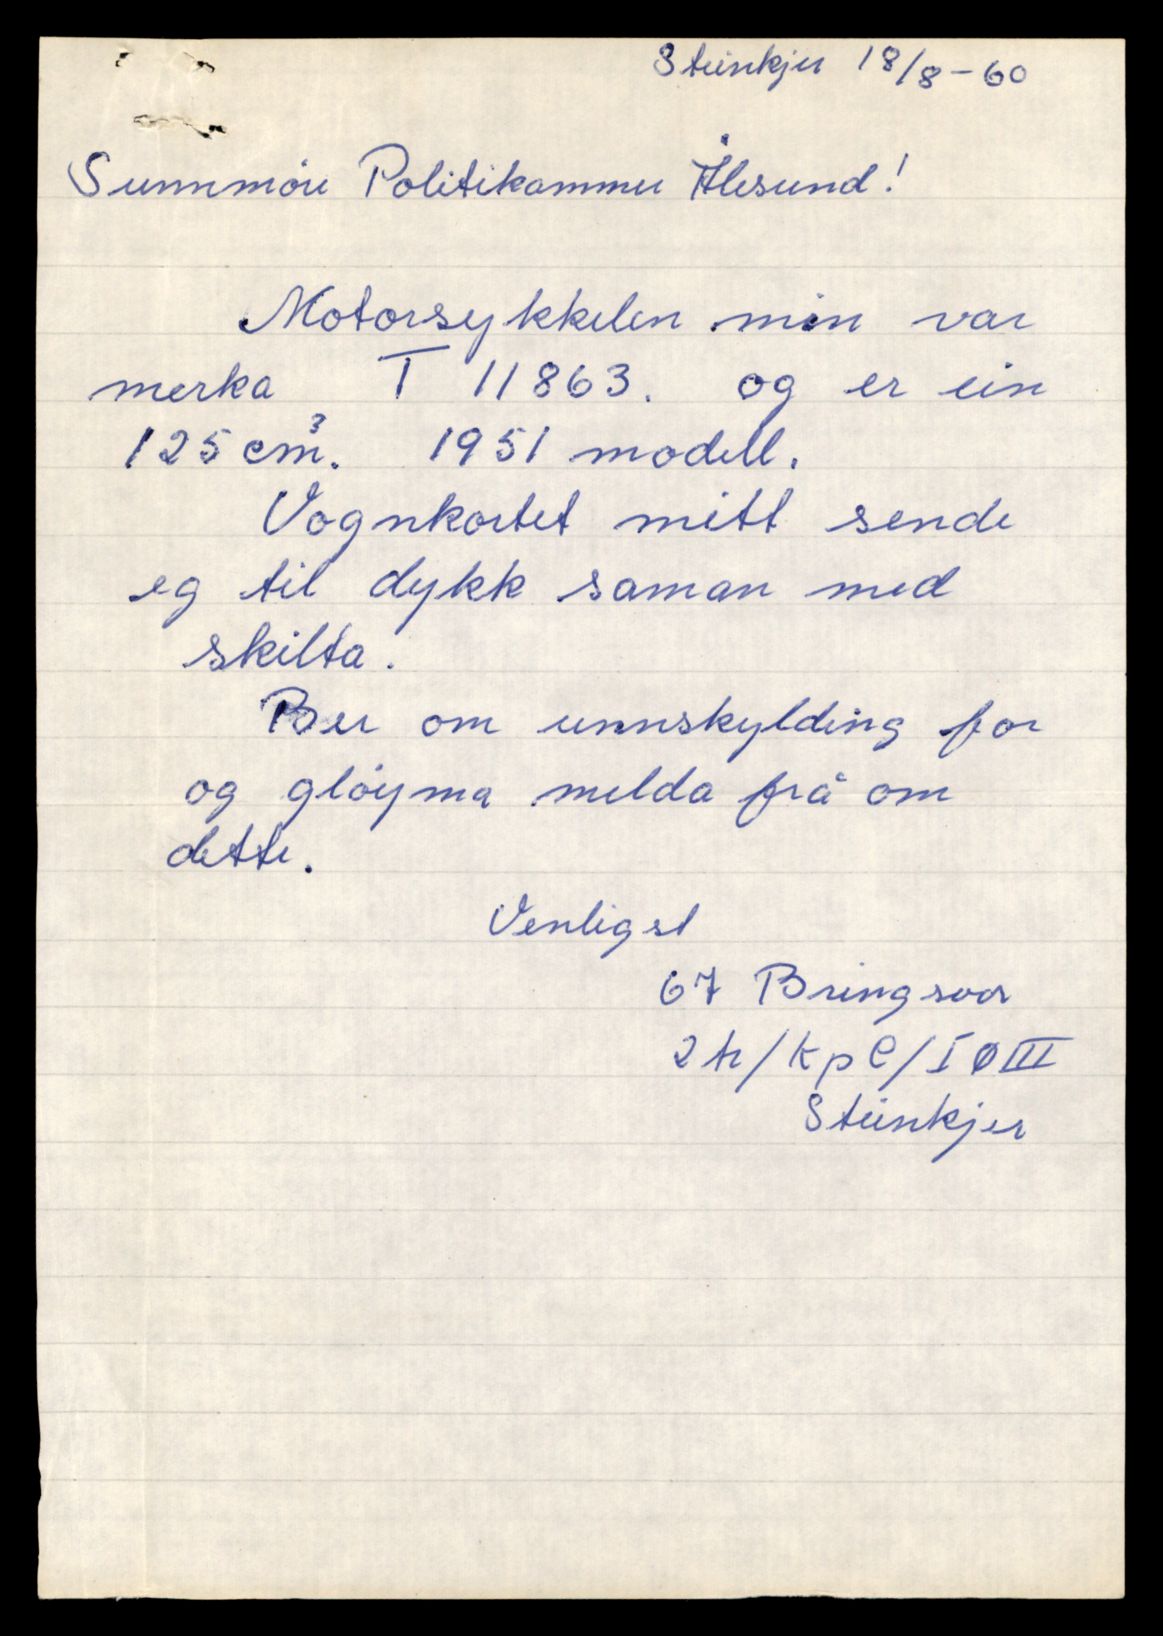 Steinkjer 18/8-60
Sunnmöre Politikammer Ålesund!
Motorsykkelen min var
merka T 11863. og er ein
125 cm³. 1951 modell.
Vognkortet mitt sende
eg til dykk saman med
skilta.
Ber om unnskylding for
og glöyma melda frå om
dette.
Venligst
67 Bringsvor
2 tr/Kp C/IØIII
Steinkjer